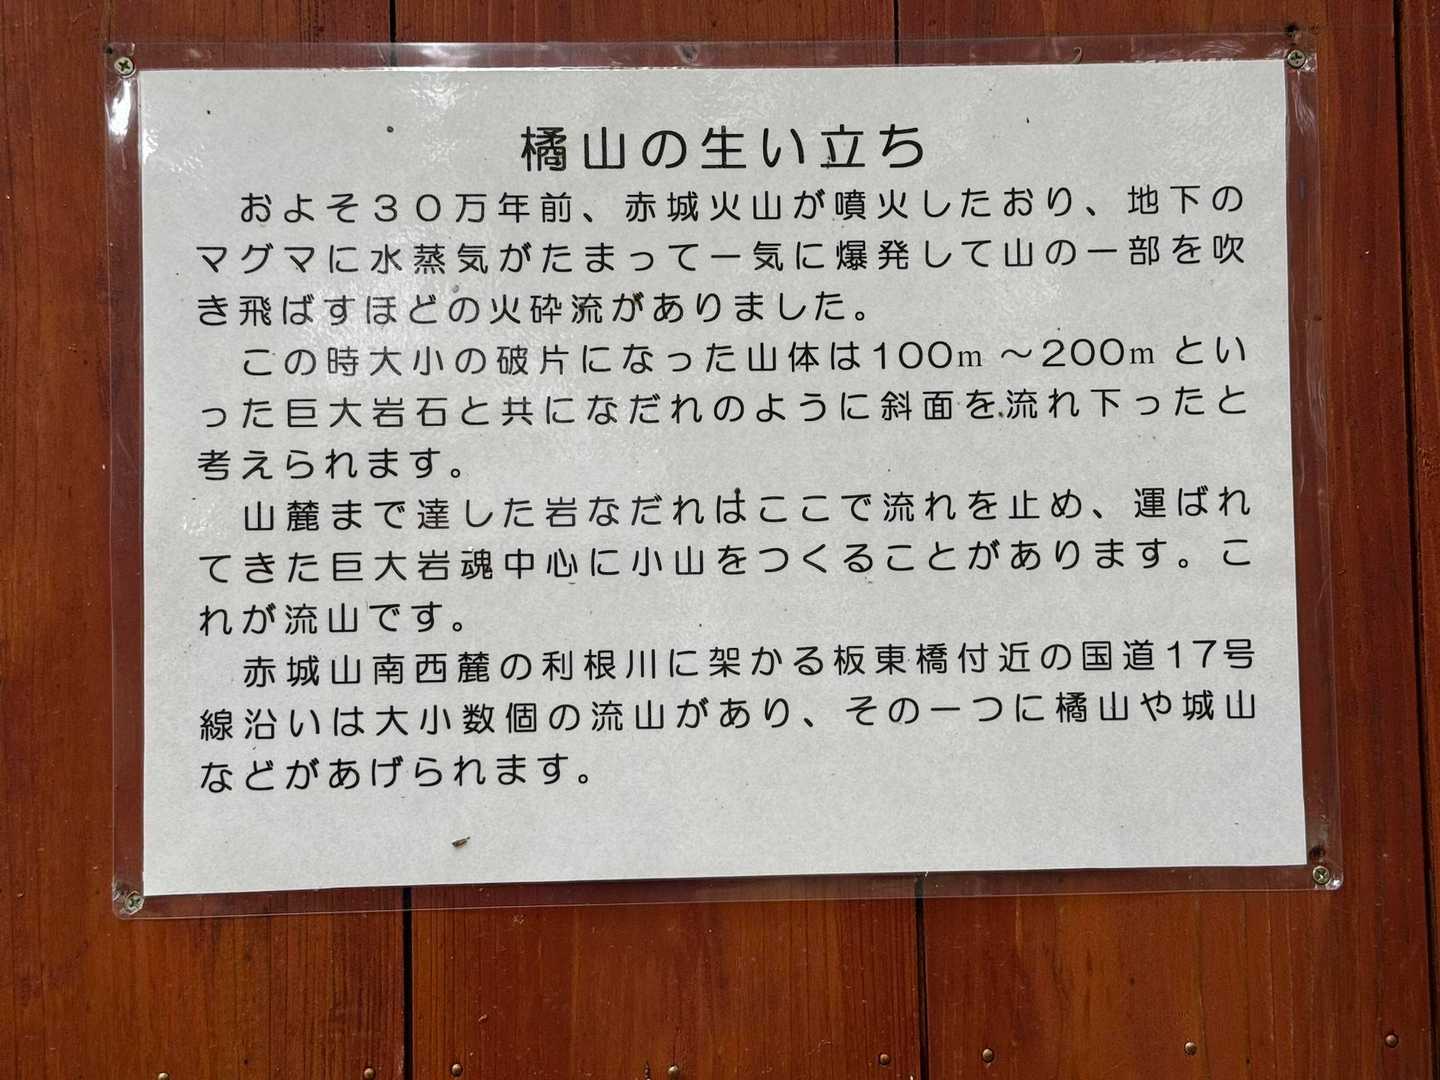 橘山の生い立ち
およそ３０万年前、赤城火山が噴火したおり、地下の
マグマに水蒸気がたまって一気に爆発して山の一部を吹
き飛ばすほどの火砕流がありました。
この時大小の破片になった山体は100m ～200m とい
った巨大岩石と共になだれのように斜面を流れ下ったと
考えられます。
山麓まで達した岩なだれはここで流れを止め、運ばれ
てきた巨大岩魂中心に小山をつくることがあります。こ
れが流山です。
赤城山南西麓の利根川に架かる板東橋付近の国道17号
線沿いは大小数個の流山があり、その一つに橘山や城山
などがあげられます。